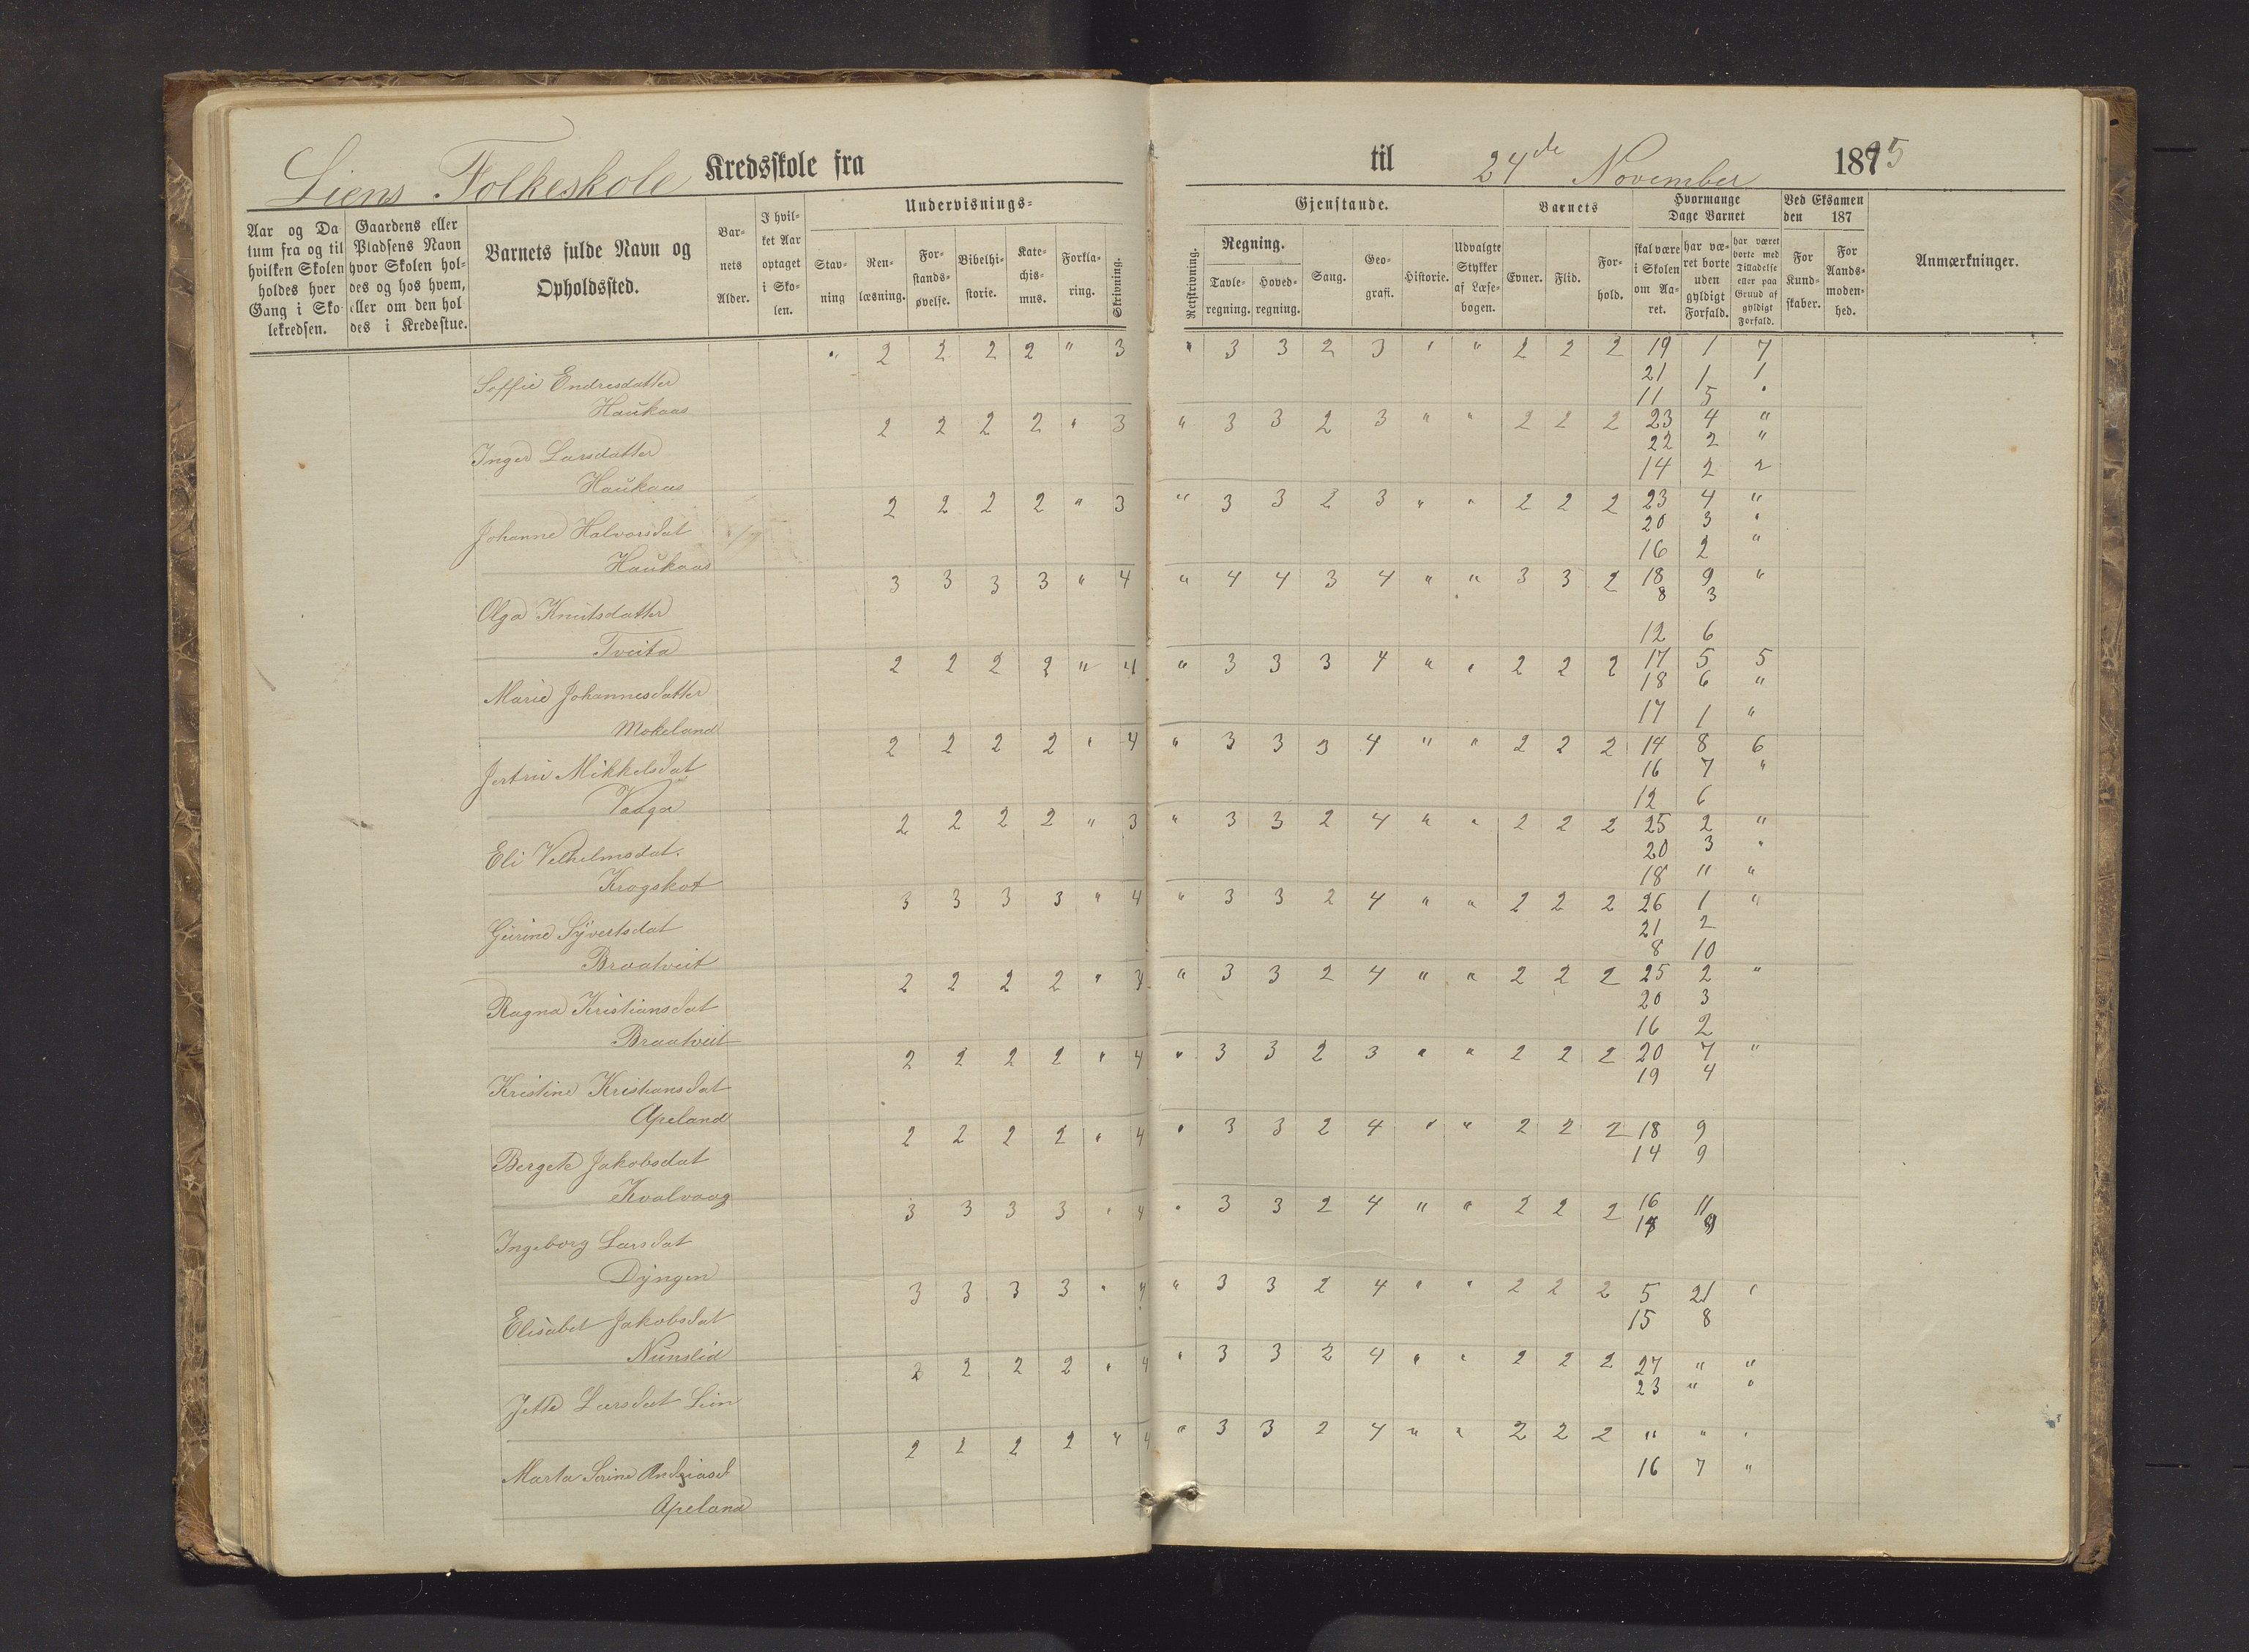 Liens Folkeskole Kredsskole fra til 24de November 1895
Undervisnings- Gjenstande. Barnets Hvormange Dage Barnet Ved Eksamen den 187
Aar og Datum fra og til hvilken Skolen holdes hver Gang i Skolekredsen.
Gaardens eller Pladsens Navn hvor Skolen holdes og hos hvem, eller om den holdes i Kredsstue.
Barnets fulde Navn og Opholdssted.
Barnets Alder.
I hvilket Aar optaget i Skolen.
Stavning
Renlæsning.
Forstandsøvelse.
Bibelhistorie.
Katechismus.
Forklaring.
Skrivning.
Retskrivning.
Regning.
Tavleregning.
Hovedregning.
Sang.
Geografi.
Historie.
Udvalgte Stykker af Læsebogen.
Evner.
Flid.
Forhold.
skal være i Skolen om Aaret.
har været borte uden gyldigt Forfald.
har været borte med Tilladelse eller paa Grund af gyldigt Forfald.
For Kundskaber.
For Aandsmodenhed.
Anmærkninger.
" 2 2 2 2 " 3 " 3 3 2 3 " " 2 2 2 19 1 7
Soffie Endresdatter 21 1 1
Haukaas 11 5 "
2 2 2 2 " 3 " 3 3 2 3 " " 2 2 2 23 4 "
Inger Larsdatter 22 2 "
Haukaas 14 2 2
2 2 2 2 " 3 " 3 3 2 3 " " 2 2 2 23 4 "
Johanne Halvorsdat 20 3 "
Haukaas 16 2 "
3 3 3 3 " 4 " 4 4 3 4 " " 3 3 2 18 9 "
8 3
Olga Knutsdatter
Tveita 12 6
2 2 2 2 " 4 " 3 3 3 4 " " 2 2 2 17 5 5
Marie Johannesdatter 18 6 "
Mokeland 17 1 "
2 2 2 2 " 4 " 3 3 3 4 " " 2 2 2 14 8 6
Jertrui Mikkelsdat 16 7 "
Vaaga 12 6
2 2 2 2 " 3 " 3 3 2 4 " " 2 2 2 25 2 "
Eli Velhelmsdat. 20 3 "
Krogskot 18 " "
3 3 3 3 " 4 " 3 3 2 4 " " 2 2 2 26 1 "
Gurine Syvertsdat 21 2
Braatveit 8 10
2 2 2 2 " 3 " 3 3 2 4 " " 2 2 2 25 2 "
Ragna Kristiansdat 20 3
Braatveit 16 2
2 2 2 2 " 4 " 3 3 2 3 " " 2 2 2 20 7 "
Kristine Kristiansdat 19 4
Apeland
2 2 2 2 " 4 " 3 3 2 4 " " 2 2 2 18 9
Bergete Jakobsdat 14 9
Kvalvaag
3 3 3 3 " 4 " 3 3 2 4 " " 2 2 2 16 11
Ingeborg Larsdat
Dyngen
3 3 3 3 " 4 " 3 3 2 4 " " 2 2 2 5 21 "
Elisabet Jakobsdat 15 8
Nunslid
2 2 2 2 " 4 " 3 3 2 4 " " 2 2 2 27 " "
Jette Larsdat Lien 23 " "
2 2 2 2 " 4 " 3 3 2 4 " " 2 2 2 " " "
Marta Serine Andriasd 16 7 "
Apeland